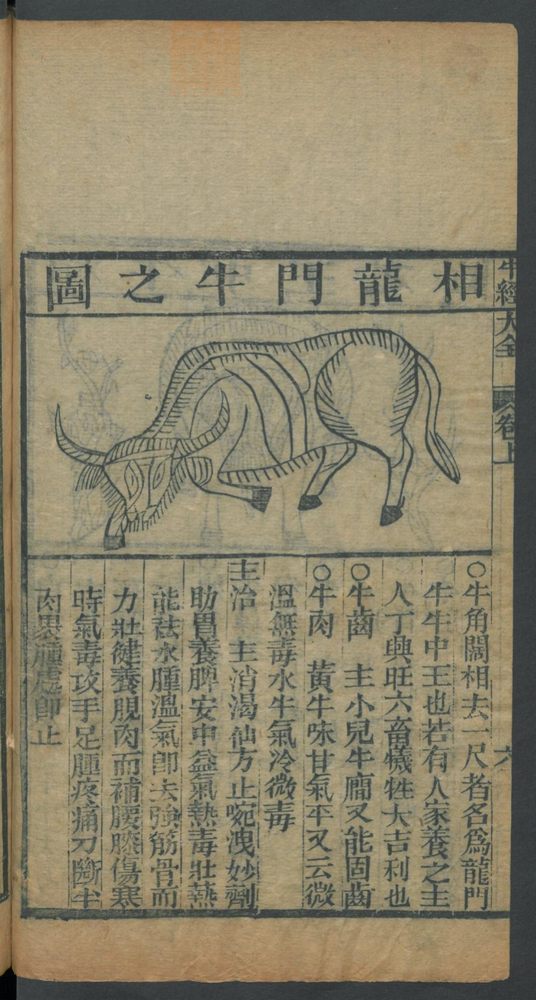 牛經大全 卷上
六
相龍門牛之圖
○牛角闊相去一尺者名爲龍門
牛牛中王也若有人家養之主
人丁興旺六畜犧牲大吉利也
○牛齒 主小兒牛癇又能固齒
○牛肉 黃牛味甘氣平又云微
溫無毒水牛氣冷微毒
主治 主消渴仙方止啘洩妙劑
助胃養脾安中益氣熱毒壯熱
能祛水腫溫氣卽去強筋骨而
力壯健養肌肉而補腰膝傷寒
時氣毒攻手足腫疼痛刀斷牛
肉裹腫處卽止